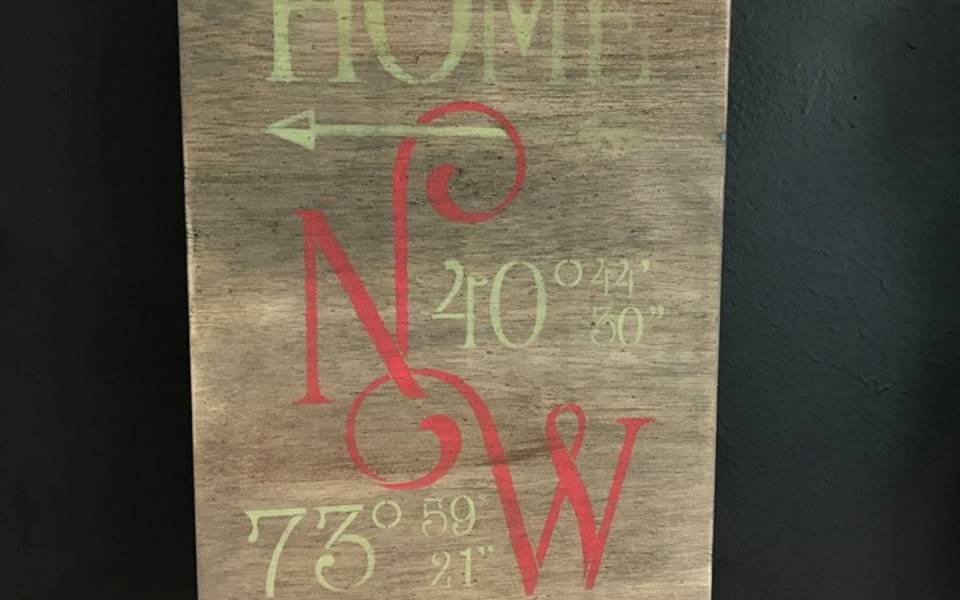 HOME
N
40° 44'
30"
W
73° 59'
21"